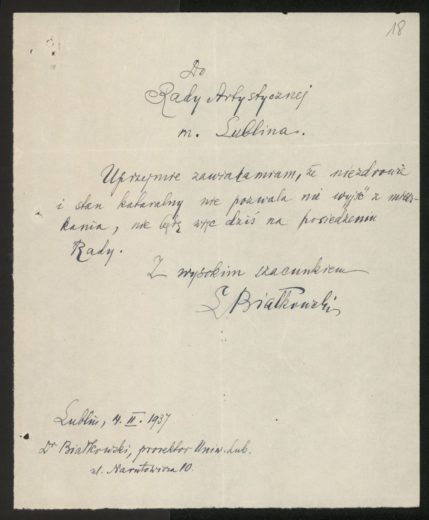 18
Do
Rady Artystycznej
m. Lublina.
Uprzejmie zawiadamiam, że niezdrowie
i stan kataralny nie pozwala mi wyjść z miesz-
kania, nie będę więc dziś na posiedzeniu
Rady.
Z wysokim szacunkiem
L Białkowski
Lublin, 4. II. 1937
Dr Białkowski, prorektor Uniw. Lub.
ul. Narutowicza 10.